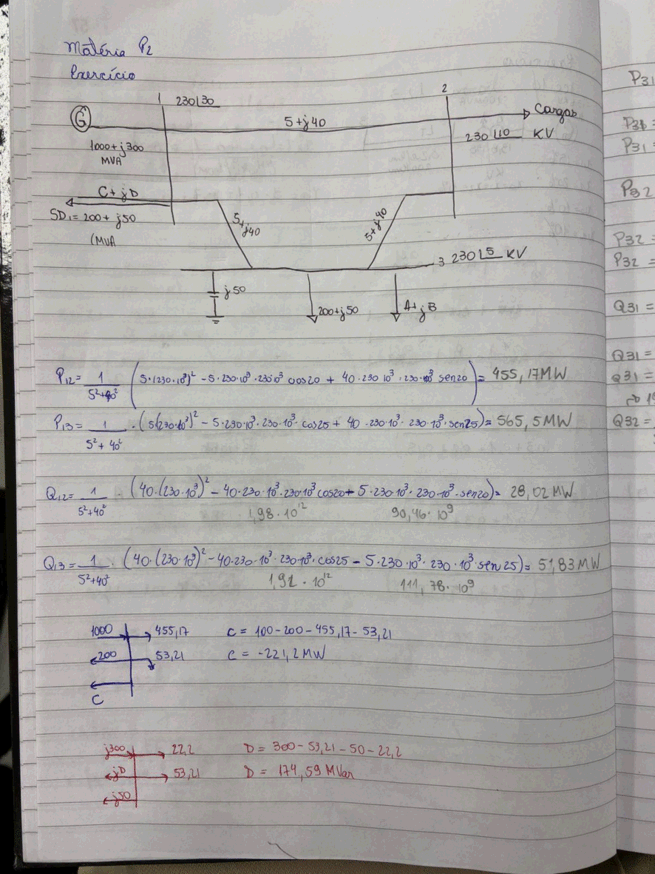 Matéria P2
Exercício
1 230∠30
2
G
5+j40
Cargas
230∠10 KV
1000+j300
MVA
C+jD
SD1=200+j50
(MVA
5+j40
5+j40
3 230∠5 KV
j50
200+j50
A+jB
P12= 1/(5²+40²) (5·(230·10³)² - 5·230·10³·230·10³ cos20 + 40·230·10³·230·10³ sen20) = 455,17MW
P13 = 1/(5²+40²) ·(5(230·10³)² - 5·230·10³·230·10³·cos25 + 40·230·10³·230·10³·sen25) = 565,5MW
Q12= 1/(5²+40²) (40·(230·10³)² - 40·230·10³·230·10³cos20 - 5·230·10³·230·10³·sen20) = 28,02 MW
1,98·10¹² 90,46·10⁹
Q13 = 1/(5²+40²) · (40·(230·10³)² - 40·230·10³·230·10³·cos25 - 5·230·10³·230·10³ sen25) = 51,83 MW
1,92·10¹² 111,78·10⁹
1000 455,17 C = 100-200-455,17-53,21
200 53,21 C = -221,2 MW
C
j300 22,2 D = 300-53,21-50-22,2
jD 53,21 D = 174,59 MVar
j50
P31
P31 =
P31 =
P32
P32 =
P32 =
Q31 =
Q31 =
Q31 =
Q32 =